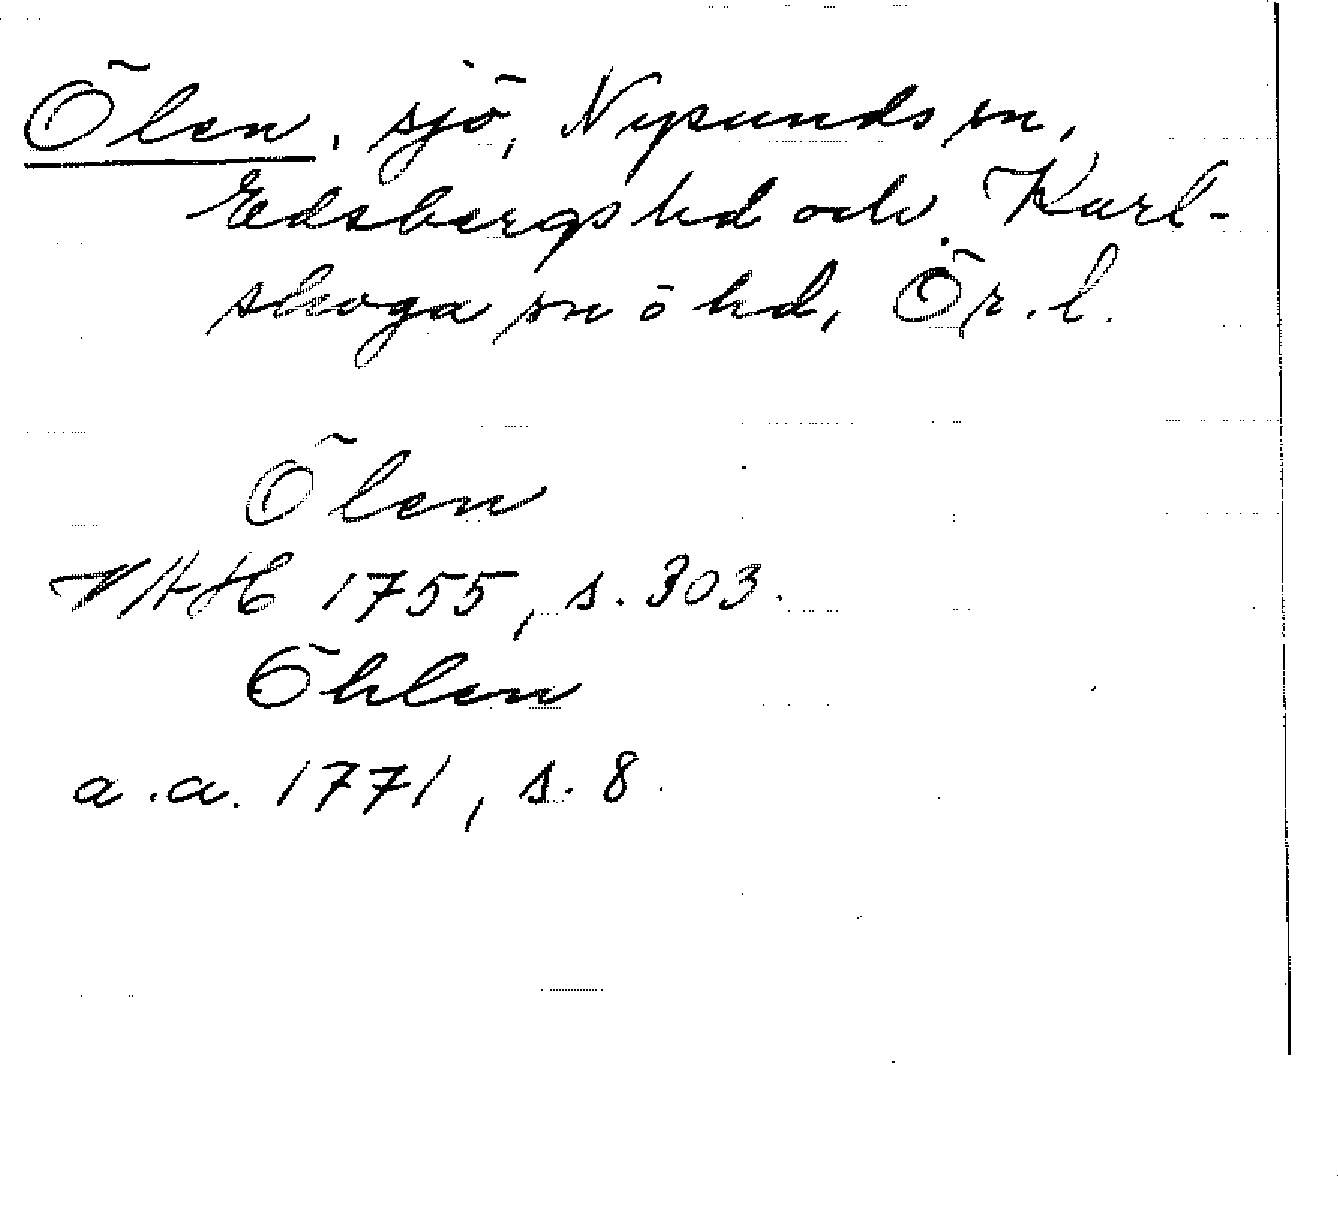 Ölen, sjö, Nysunds sn,
Edsbergs hd och Karl-
skoga sn o hd, Ör. l.
Ölen
VAH 1755, s. 303.
Öhlen
a. a. 1771, s. 8